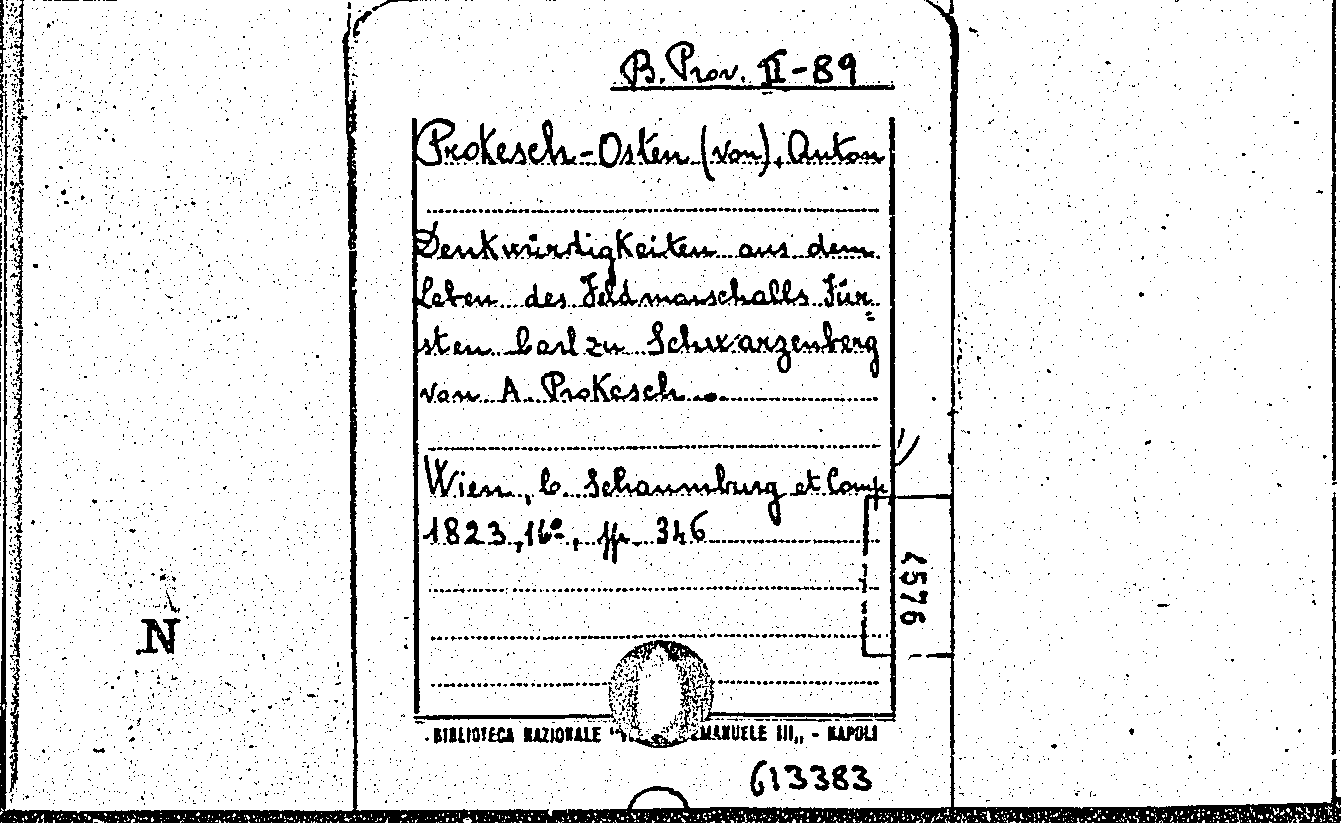 B. Prov. II-89
Prokesch-Osten (von), Anton
Denkwürdigkeiten aus dem
Leben des Feldmarschalls Für=
sten Carl zu Schwarzenberg
von A. Prokesch...
Wien, C. Schaumburg et Comp
1823, 16°, pp. 346
4576
N
BIBLIOTECA NAZIONALE " EMANUELE III„ - NAPOLI
613383